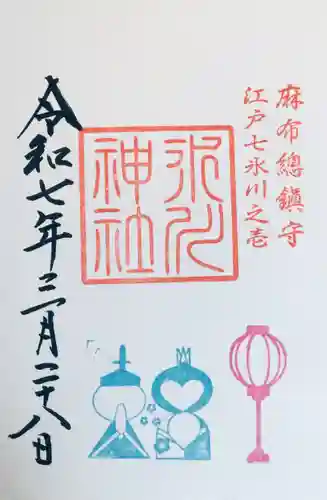 麻布總鎮守
江戸七氷川之壱
氷川
神社
令和七年三月二十八日